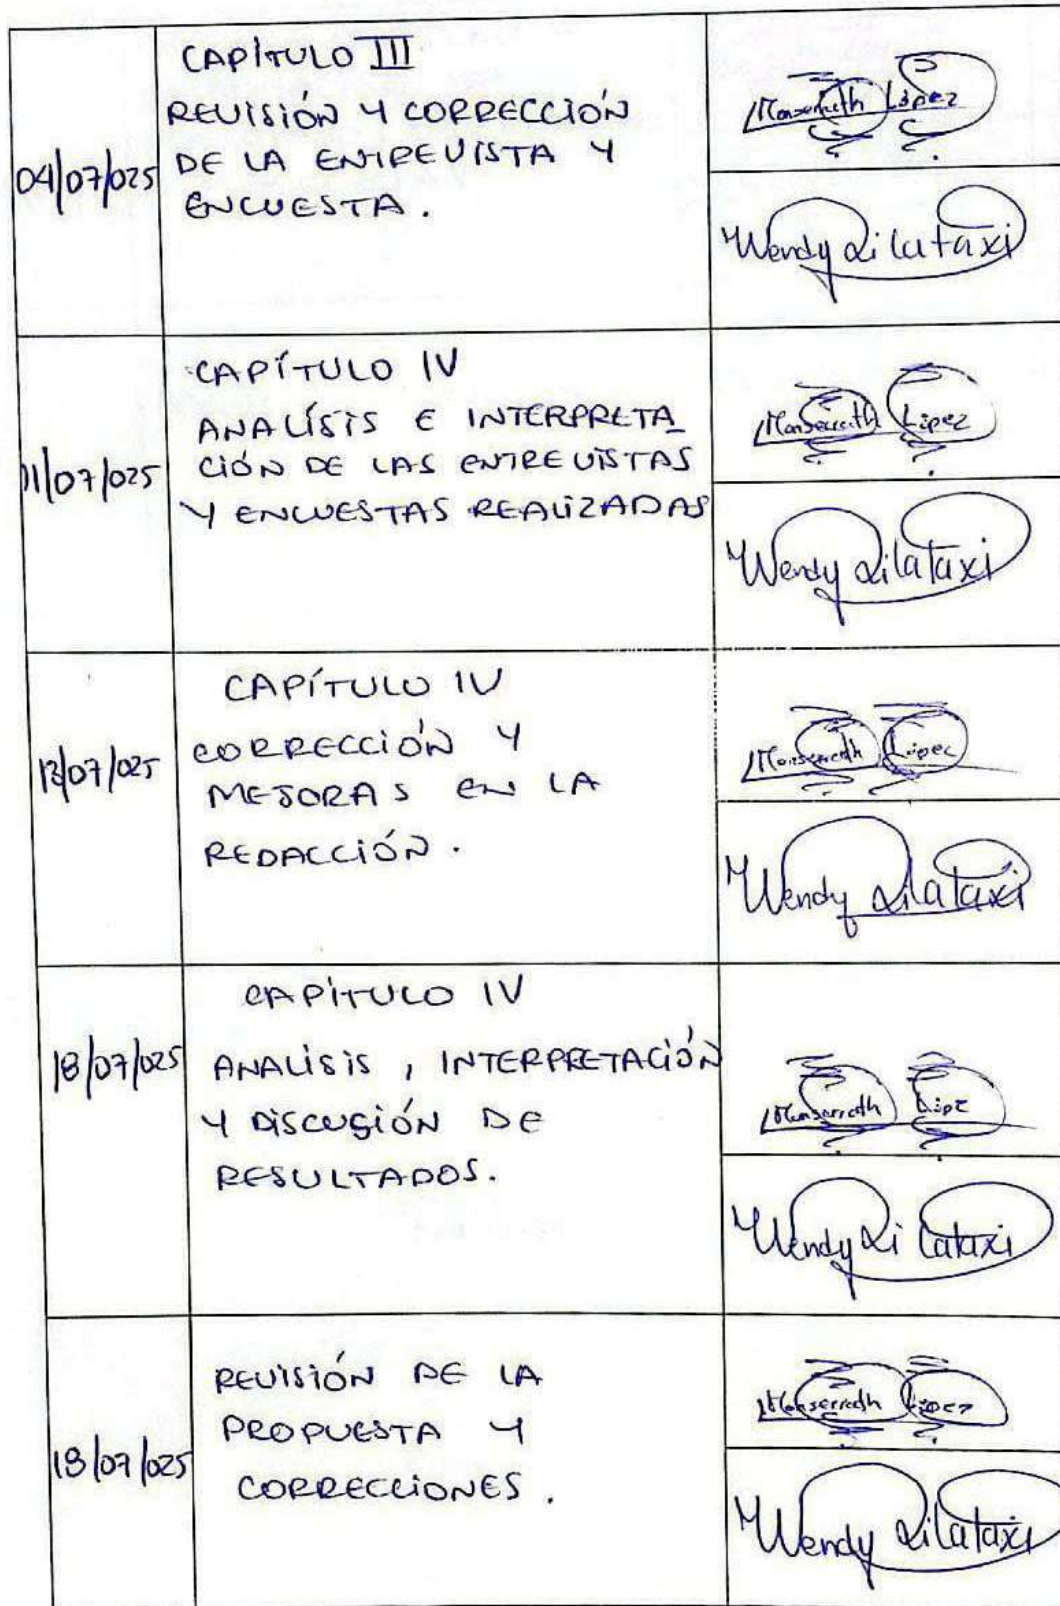 CAPÍTULO III
REVISIÓN Y CORRECCIÓN
04/07/025
DE LA ENTREVISTA Y
ENCUESTA.
Monserrath López
Wendy Quilataxi
CAPÍTULO IV
ANALÍSIS E INTERPRETA_
CIÓN DE LAS ENTREVISTAS
11/07/025
Y ENCUESTAS REALIZADAS
Monserrath López
Wendy Qilataxi
CAPÍTULO IV
CORRECCIÓN Y
13/07/025
MEJORAS EN LA
REDACCIÓN.
Monserrath López
Wendy Qilataxi
CAPÍTULO IV
18/07/025
ANALISIS, INTERPRETACIÓN
Y DISCUSIÓN DE
RESULTADOS.
Monserrath López
Wendy Qilataxi
REVISIÓN DE LA
PROPUESTA Y
18/07/025
CORRECCIONES.
Monserrath López
Wendy Qilataxi